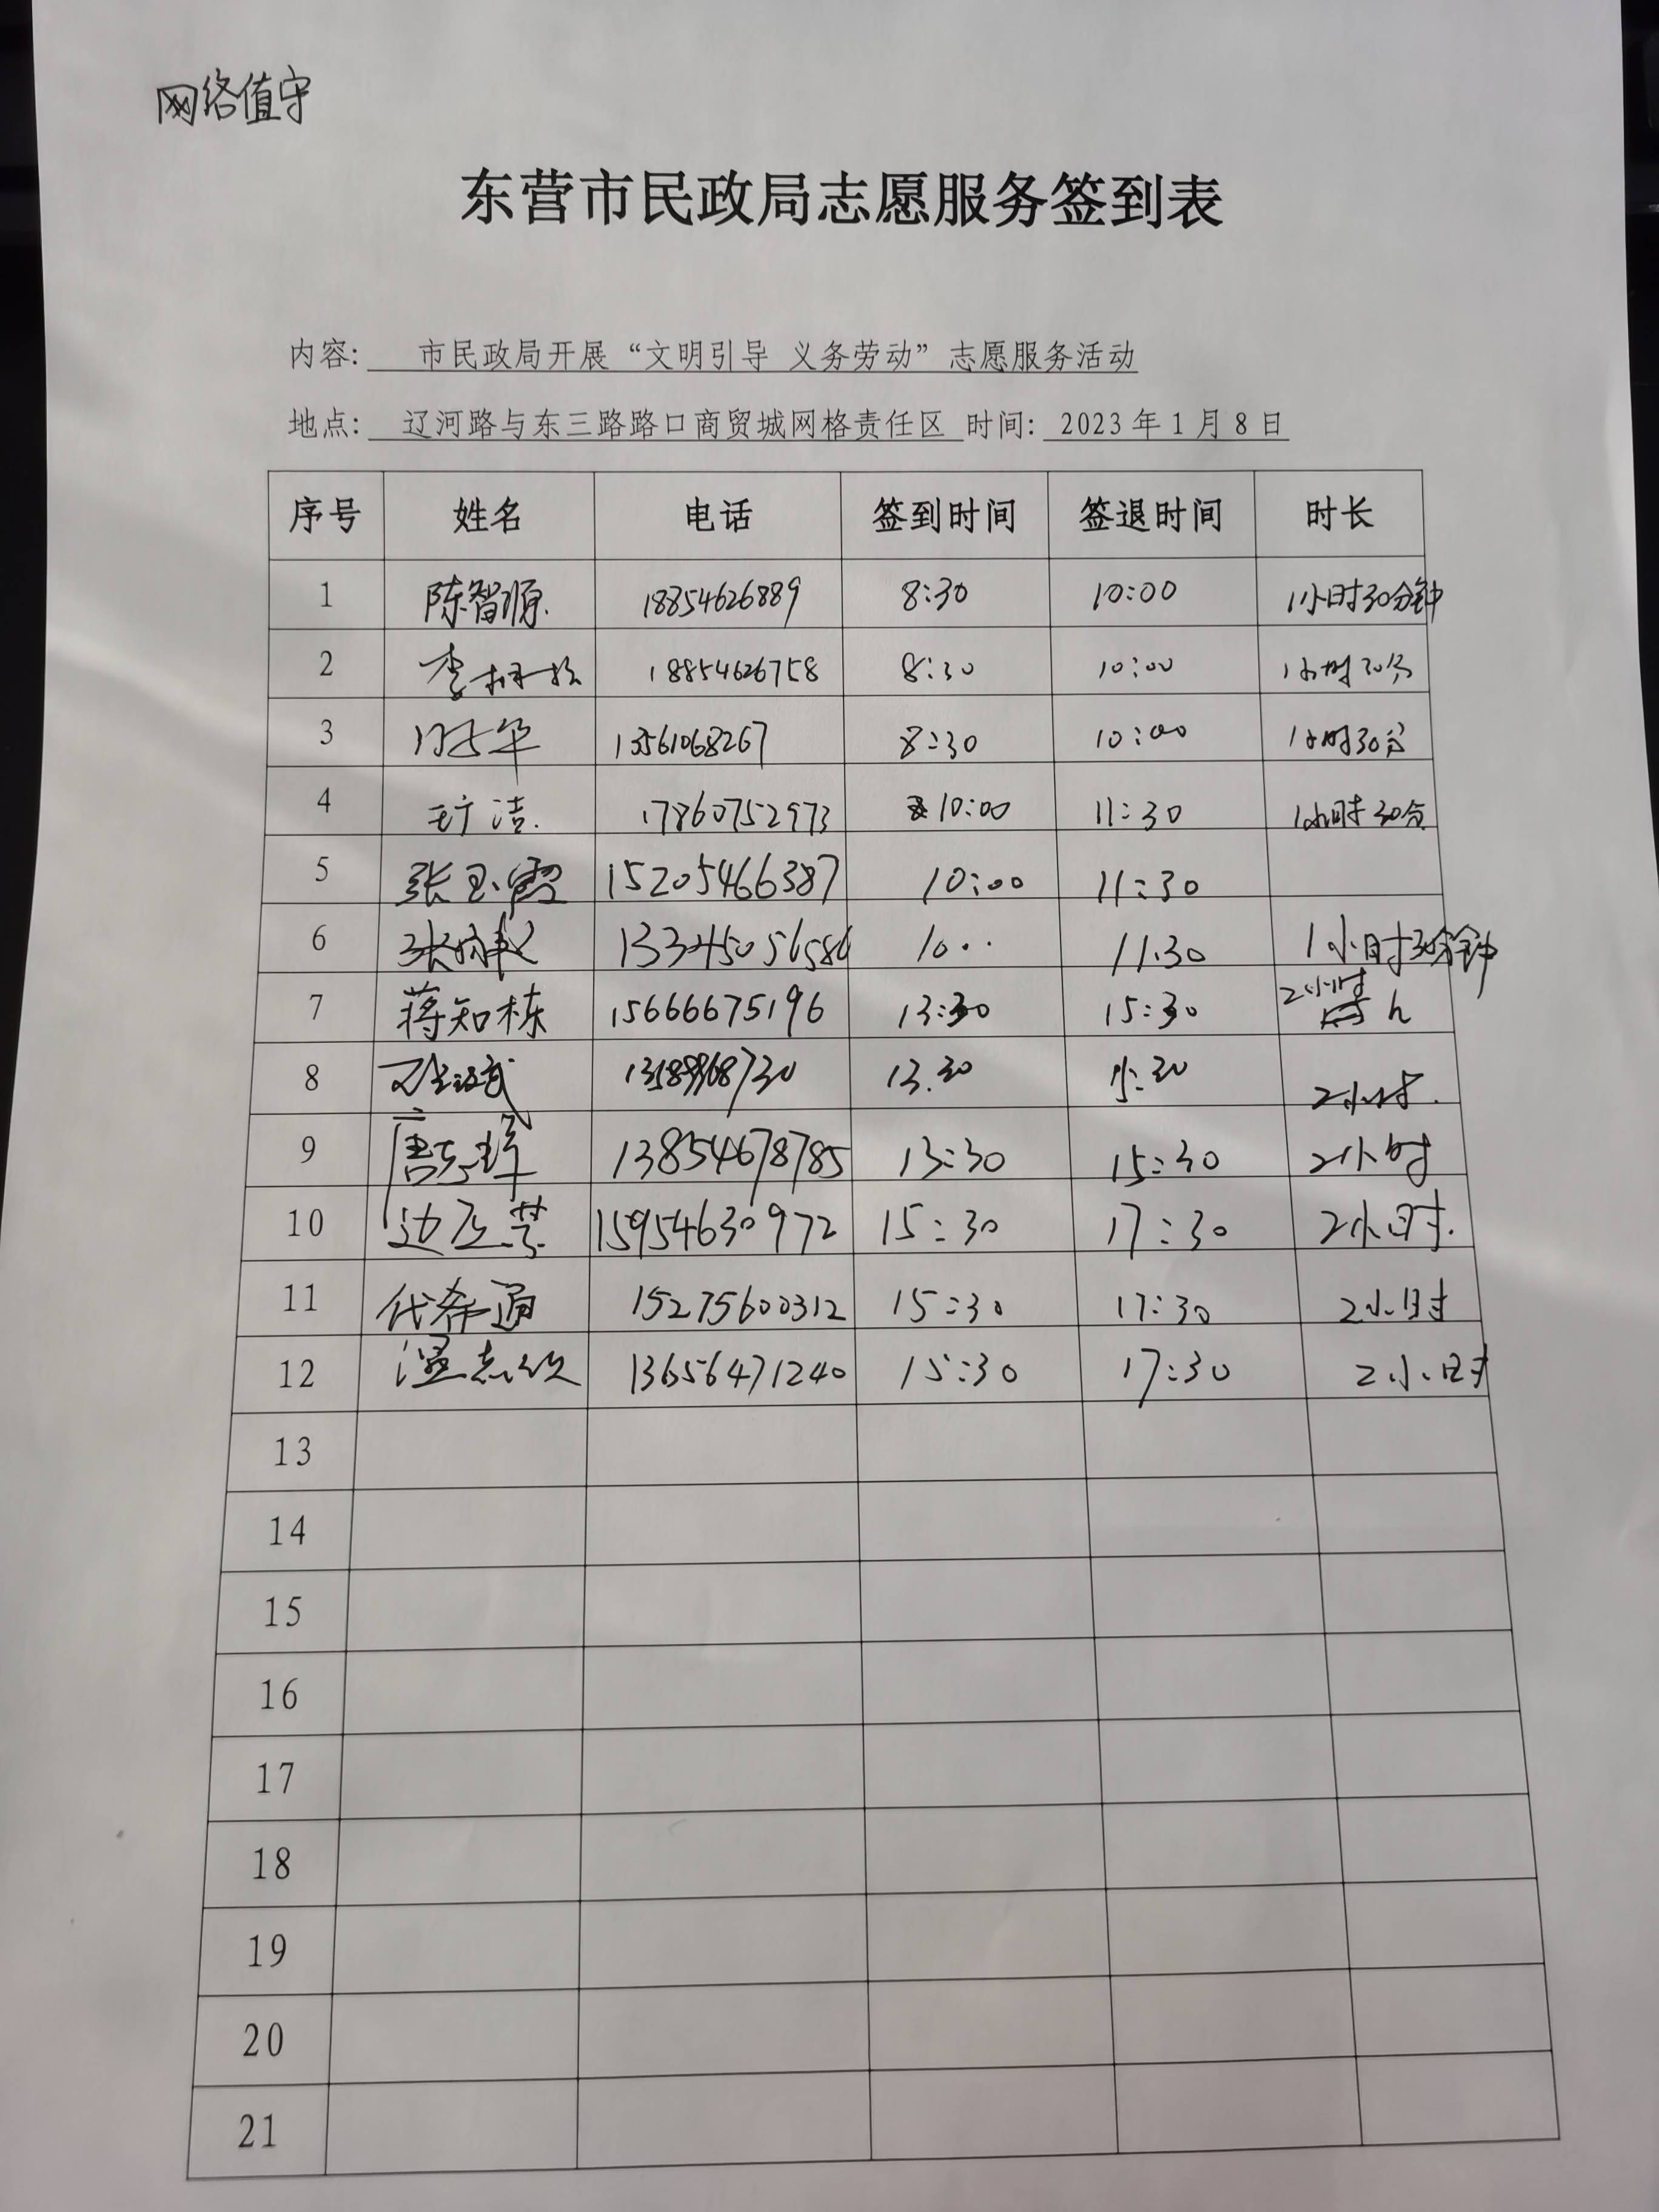 网络值守
东营市民政局志愿服务签到表
内容: 市民政局开展“文明引导 义务劳动”志愿服务活动
地点: 辽河路与东三路路口商贸城网格责任区 时间: 2023年1月8日
序号 姓名 电话 签到时间 签退时间 时长
1 陈智源 18854626889 8:30 10:00 1小时30分钟
2 李 18854626758 8:30 10:00 1小时30分
3 华 13561068267 8:30 10:00 1小时30分
4 洁 17860752973 10:00 11:30 1小时30分
5 张玉霞 15205466387 10:00 11:30
6 张 11.30 1小时30分钟
7 蒋知栋 15666675196 13:30 15:30 2小时 h
8 13.30 15:30 2小时.
9 唐 13854678785 13:30 15:30 2小时
10 边 15954630972 15:30 17:30 2小时.
11 代希通 15275600312 15:30 17:30 2小时
12 温志 13656471240 15:30 17:30 2小时
13
14
15
16
17
18
19
20
21